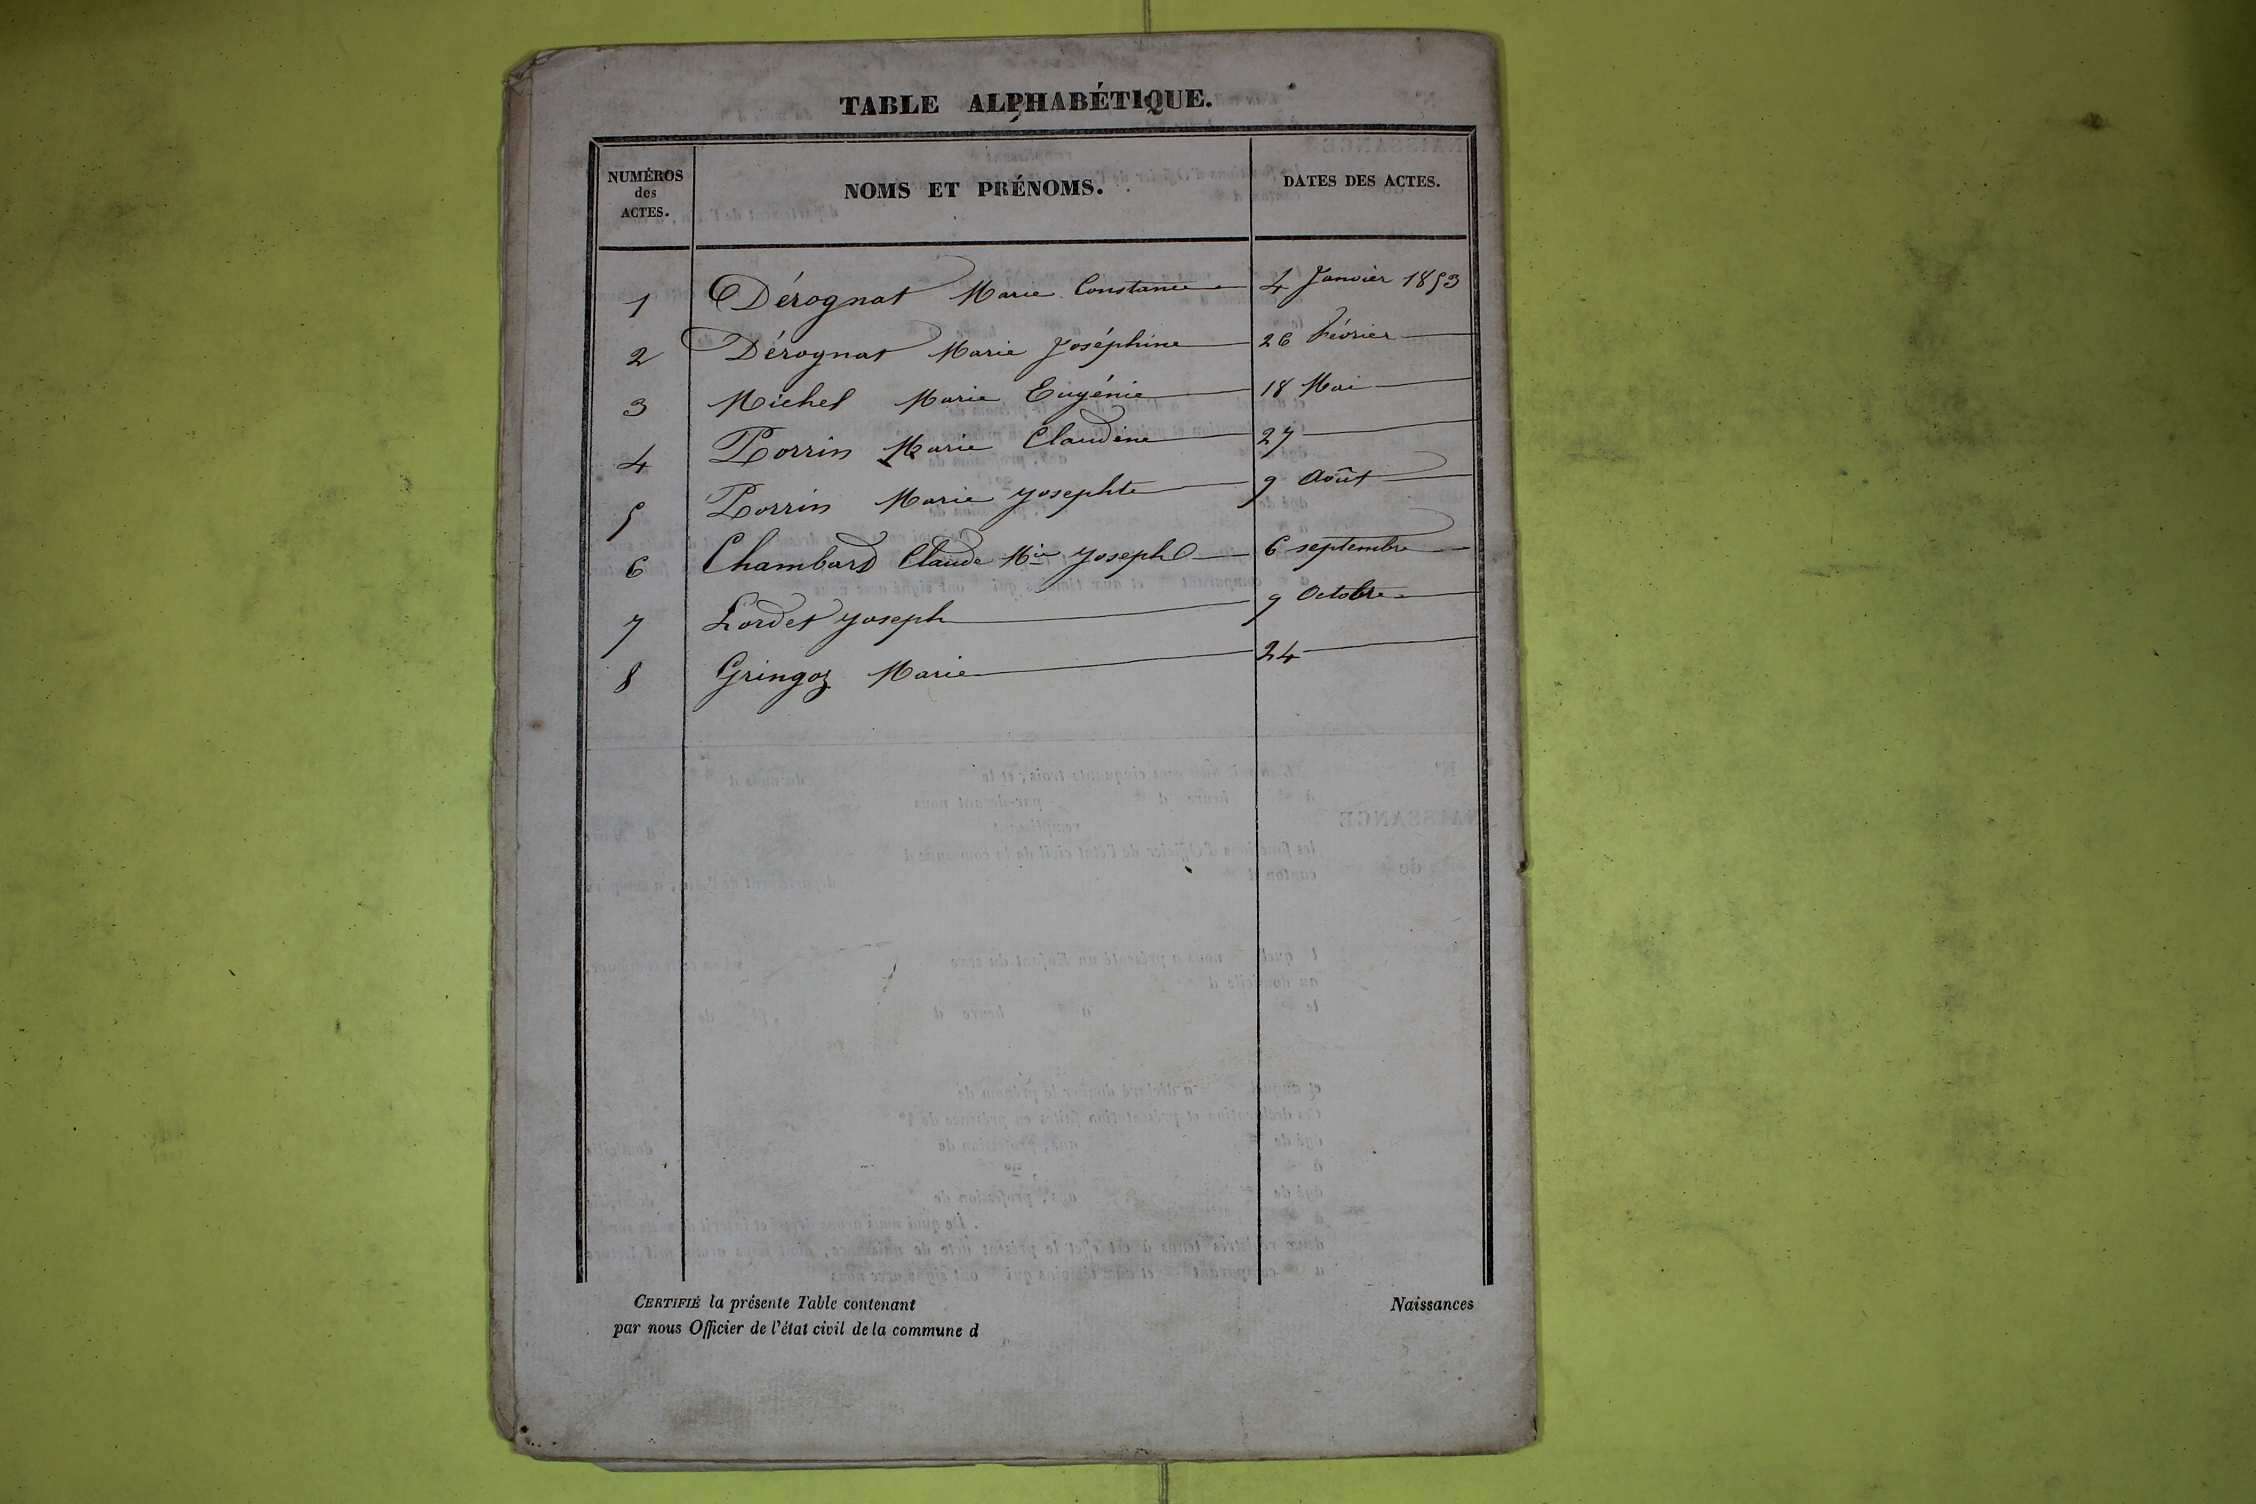 TABLE ALPHABÉTIQUE.
NUMÉROS des ACTES. NOMS ET PRÉNOMS. DATES DES ACTES.
1 Dérognat Marie Constance 4 Janvier 1853
2 Dérognat Marie Joséphine 26 Février
3 Michel Marie Eugénie 18 Mai
4 Perrin Marie Claudine 27
5 Perrin Marie Josephte 9 Août
6 Chambard Claude Mie Joseph 6 septembre
7 Lordet Joseph 9 Octobre
8 Gringoz Marie 24
CERTIFIÉ la présente Table contenant Naissances
par nous Officier de l'état civil de la commune d